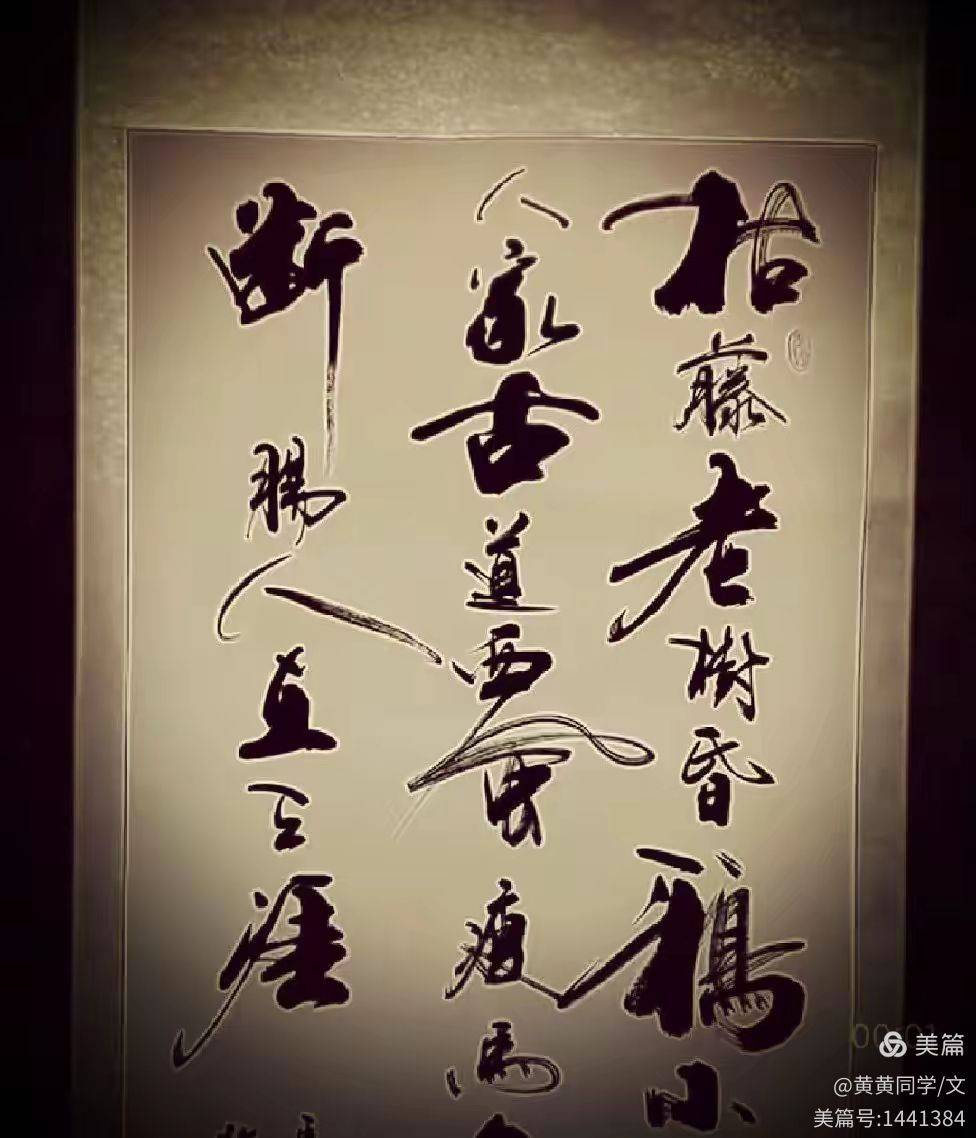 枯藤老樹昏鴉小
人家古道西風瘦馬
断腸人在天涯
美篇
@黄黄同学/文
美篇号:1441384